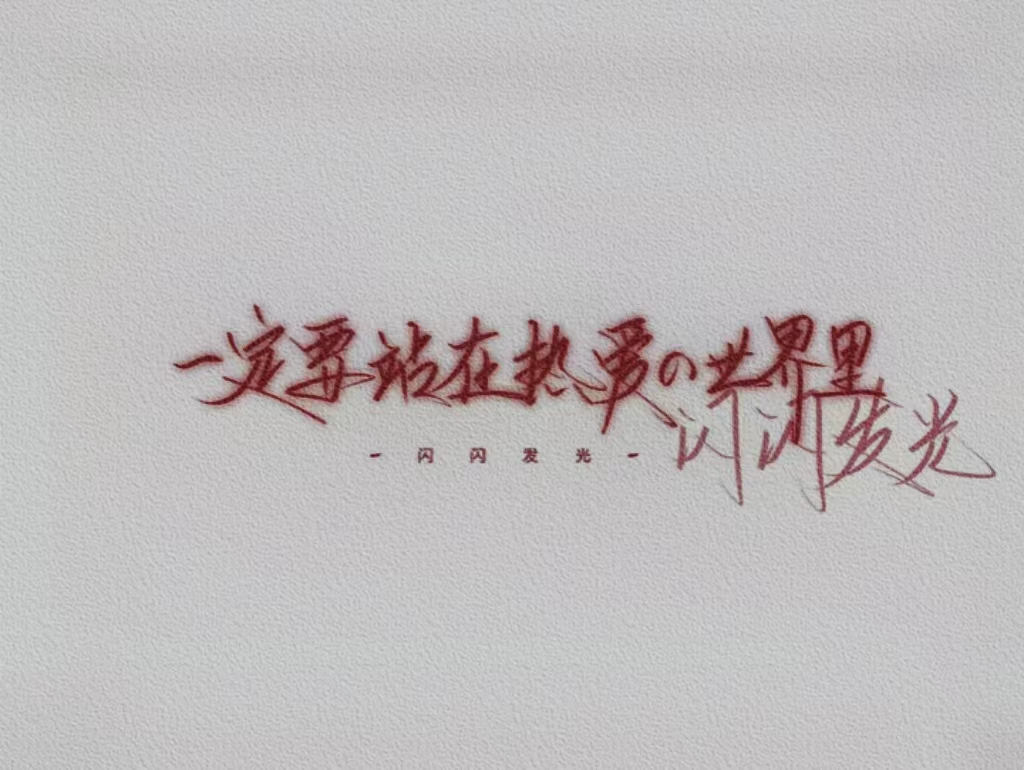 一定要站在热爱の世界里
闪闪发光
- 闪闪发光 -